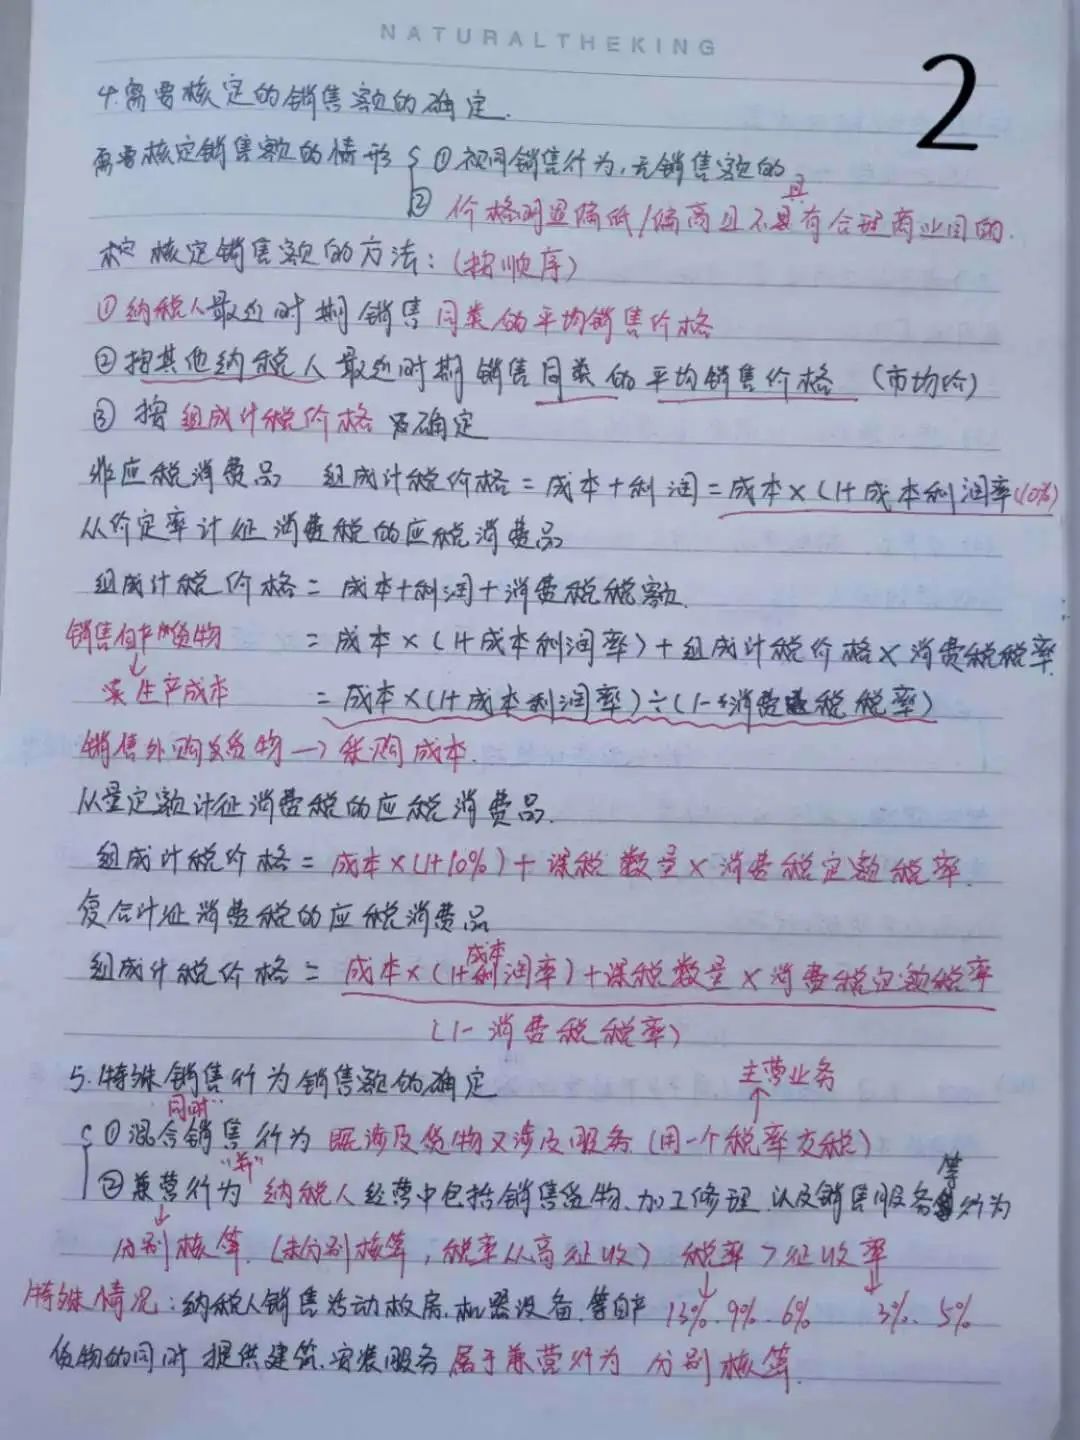 NATURALTHEKING
2
4.需要核定的销售额的确定.
需要核定销售额的情形 ①视同销售行为,无销售额的
②价格明显偏低/偏高且不具有合理商业目的.
核定销售额的方法:(按顺序)
①纳税人最近时期销售同类的平均销售价格
②按其他纳税人最近时期销售同类的平均销售价格 (市场价)
③按组成计税价格确定
非应税消费品 组成计税价格=成本+利润=成本×(1+成本利润率(10%)
从价定率计征消费税的应税消费品
组成计税价格=成本+利润+消费税税额.
销售自产货物 =成本×(1+成本利润率)+组成计税价格×消费税税率.
↓
生产成本 =成本×(1+成本利润率)÷(1-消费税税率)
销售外购货物→采购成本.
从量定额计征消费税的应税消费品.
组成计税价格=成本×(1+10%)+课税数量×消费税定额税率.
复合计征消费税的应税消费品
组成计税价格=成本×(1+成本利润率)+课税数量×消费税定额税率
(1-消费税税率)
5.特殊销售行为销售额的确定 主营业务
"同时" ↑
①混合销售行为 既涉及货物又涉及服务(用一个税率交税)
"并"
②兼营行为 纳税人经营中包括销售货物、加工修理以及销售服务等行为
↓
分别核算.(未分别核算,税率从高征收) 税率>征收率
↓ ↓
特殊情况:纳税人销售活动板房.机器设备.等自产 13%.9%.6% 3%.5%
货物的同时提供建筑.安装服务属于兼营行为 分别核算.